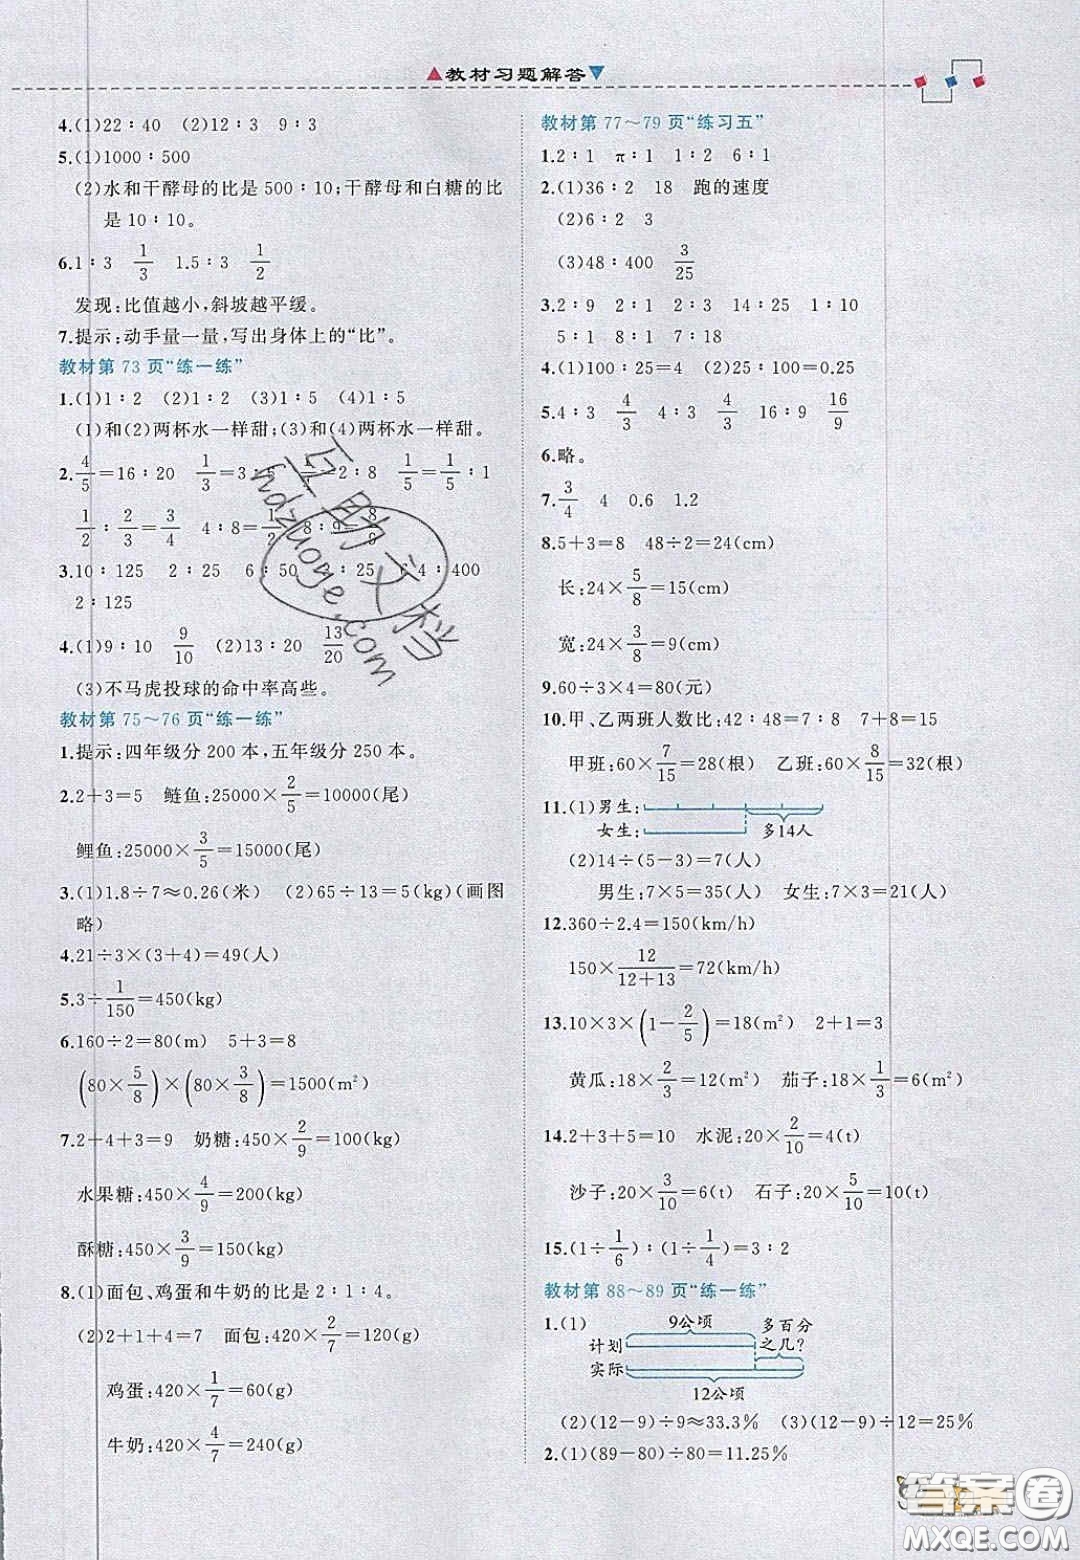 教材习题解答
4.(1)22∶40 (2)12∶3 9∶3
5.(1)1000∶500
(2)水和干酵母的比是500∶10;干酵母和白糖的比
是10∶10。
6.1∶3 1/3 1.5∶3 1/2
发现:比值越小,斜坡越平缓。
7.提示:动手量一量,写出身体上的“比”。
教材第73页“练一练”
1.(1)1∶2 (2)1∶2 (3)1∶5 (4)1∶5
(1)和(2)两杯水一样甜;(3)和(4)两杯水一样甜。
2.4/5=16∶20 1/3=3∶ =2∶8 1/5=1/5∶1
1/2∶2/3=3/4 4∶8=1/2 8∶9=8/
3.10∶125 2∶25 6∶50 ∶25 64∶400
2∶125
4.(1)9∶10 9/10 (2)13∶20 13/20
(3)不马虎投球的命中率高些。
教材第75~76页“练一练”
1.提示:四年级分200本,五年级分250本。
2.2+3=5 鲢鱼:25000×2/5=10000(尾)
鲤鱼:25000×3/5=15000(尾)
3.(1)1.8÷7≈0.26(米) (2)65÷13=5(kg)(画图
略)
4.21÷3×(3+4)=49(人)
5.3÷1/150=450(kg)
6.160÷2=80(m) 5+3=8
(80×5/8)×(80×3/8)=1500(m²)
7.2+4+3=9 奶糖:450×2/9=100(kg)
水果糖:450×4/9=200(kg)
酥糖:450×3/9=150(kg)
8.(1)面包、鸡蛋和牛奶的比是2∶1∶4。
(2)2+1+4=7 面包:420×2/7=120(g)
鸡蛋:420×1/7=60(g)
牛奶:420×4/7=240(g)
教材第77~79页“练习五”
1.2∶1 π∶1 1∶2 6∶1
2.(1)36∶2 18 跑的速度
(2)6∶2 3
(3)48∶400 3/25
3.2∶9 2∶1 2∶3 14∶25 1∶10
5∶1 8∶1 7∶18
4.(1)100∶25=4 (2)25∶100=0.25
5.4∶3 4/3 4∶3 4/3 16∶9 16/9
6.略。
7.3/4 4 0.6 1.2
8.5+3=8 48÷2=24(cm)
长:24×5/8=15(cm)
宽:24×3/8=9(cm)
9.60÷3×4=80(元)
10.甲、乙两班人数比:42∶48=7∶8 7+8=15
甲班:60×7/15=28(根) 乙班:60×8/15=32(根)
11.(1)男生:
女生: 多14人
(2)14÷(5-3)=7(人)
男生:7×5=35(人) 女生:7×3=21(人)
12.360÷2.4=150(km/h)
150×12/(12+13)=72(km/h)
13.10×3×(1-2/5)=18(m²) 2+1=3
黄瓜:18×2/3=12(m²) 茄子:18×1/3=6(m²)
14.2+3+5=10 水泥:20×2/10=4(t)
沙子:20×3/10=6(t) 石子:20×5/10=10(t)
15.(1÷1/6)∶(1÷1/4)=3∶2
教材第88~89页“练一练”
1.(1) 9公顷 多百分
计划 之几?
实际
12公顷
(2)(12-9)÷9≈33.3% (3)(12-9)÷12=25%
2.(1)(89-80)÷80=11.25%
互助文档
hdzuoye.com
答案圈
MXQE.COM